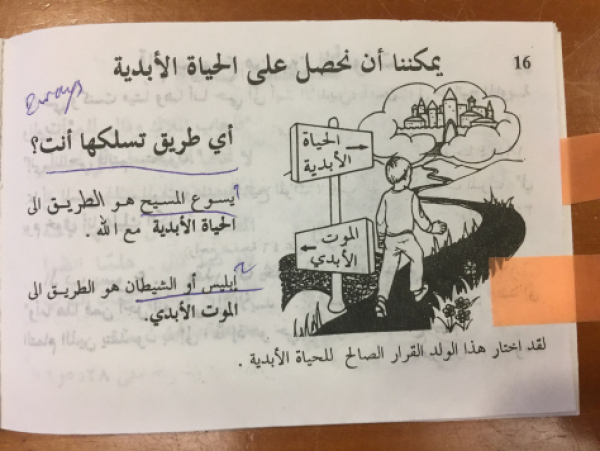 يمكننا أن نحصل على الحياة الأبدية
16
2 ways
أي طريق تسلكها أنت؟
الحياة
الأبدية
1 يسوع المسيح هو الطريق الى
الحياة الأبدية مع الله.
الموت
الأبدي
2 ابليس أو الشيطان هو الطريق الى
الموت الأبدي.
لقد اختار هذا الولد القرار الصالح للحياة الأبدية .